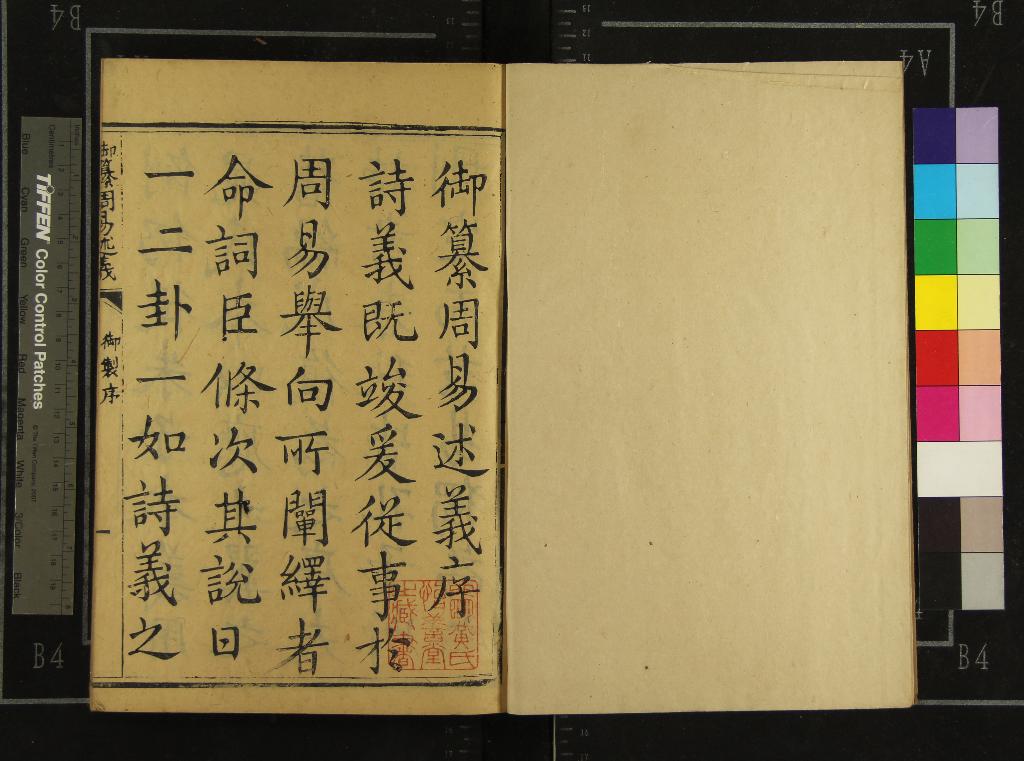 御纂周易述義序
詩義既竣爰從事於
周易舉向所闡繹者
命詞臣條次其說日
一二卦一如詩義之
御纂周易述義
御製序
一
黃氏
善堂
藏書
B4
B4
A4
B4
B4
TIFFEN Color Control Patches
© The Tiffen Company, 2007
Centimetres
Inches
Blue
Cyan
Green
Yellow
Red
Magenta
White
3/Color
Black